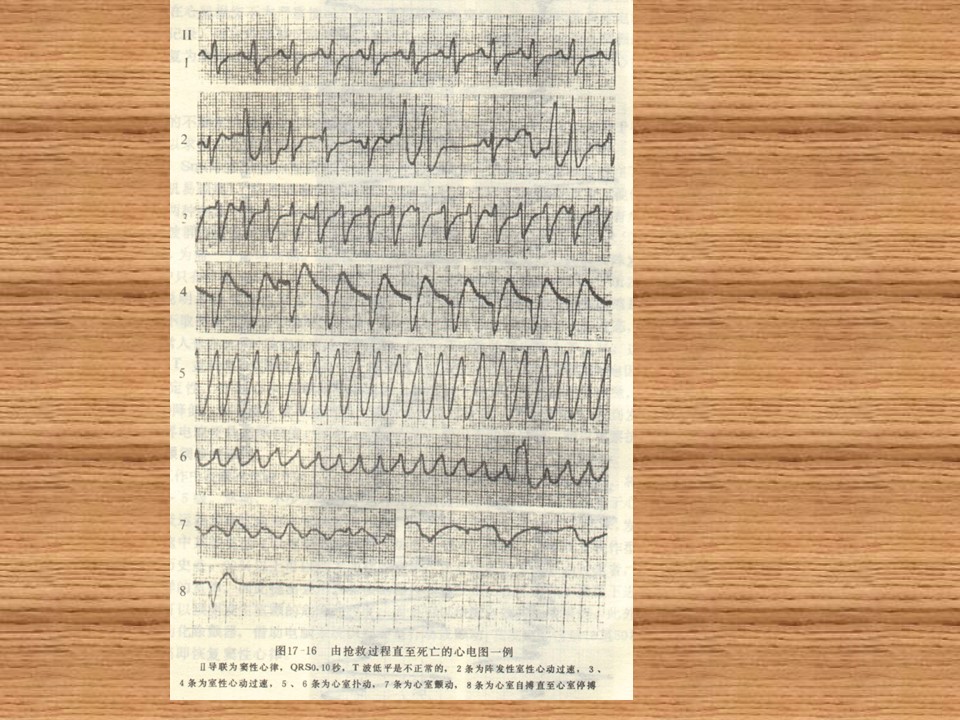 II
1
2
3
4
5
6
7
8
图17-16 由抢救过程直至死亡的心电图一例
II导联为窦性心律，QRS0.10秒，T波低平是不正常的，2条为阵发性室性心动过速，3、
4条为室性心动过速，5、6条为心室扑动，7条为心室颤动，8条为心室自搏直至心室停搏